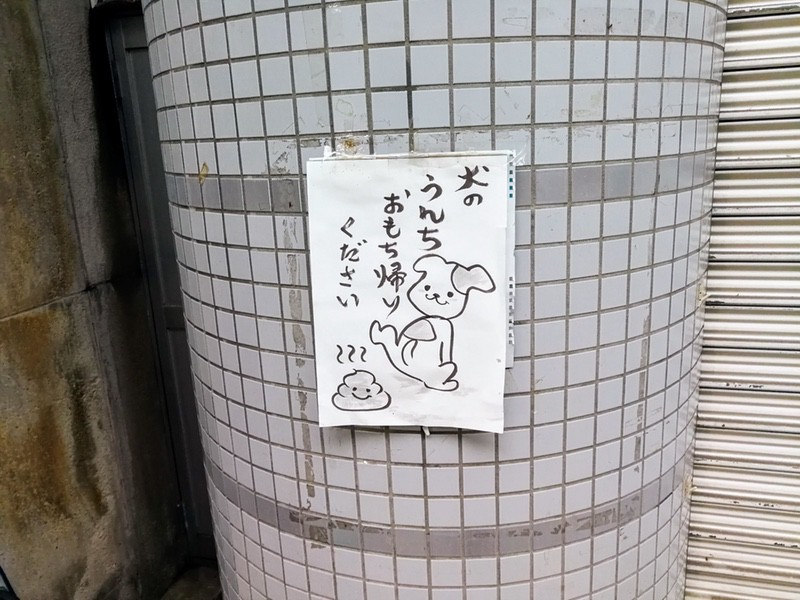 犬の
うんち
おもち帰り
ください